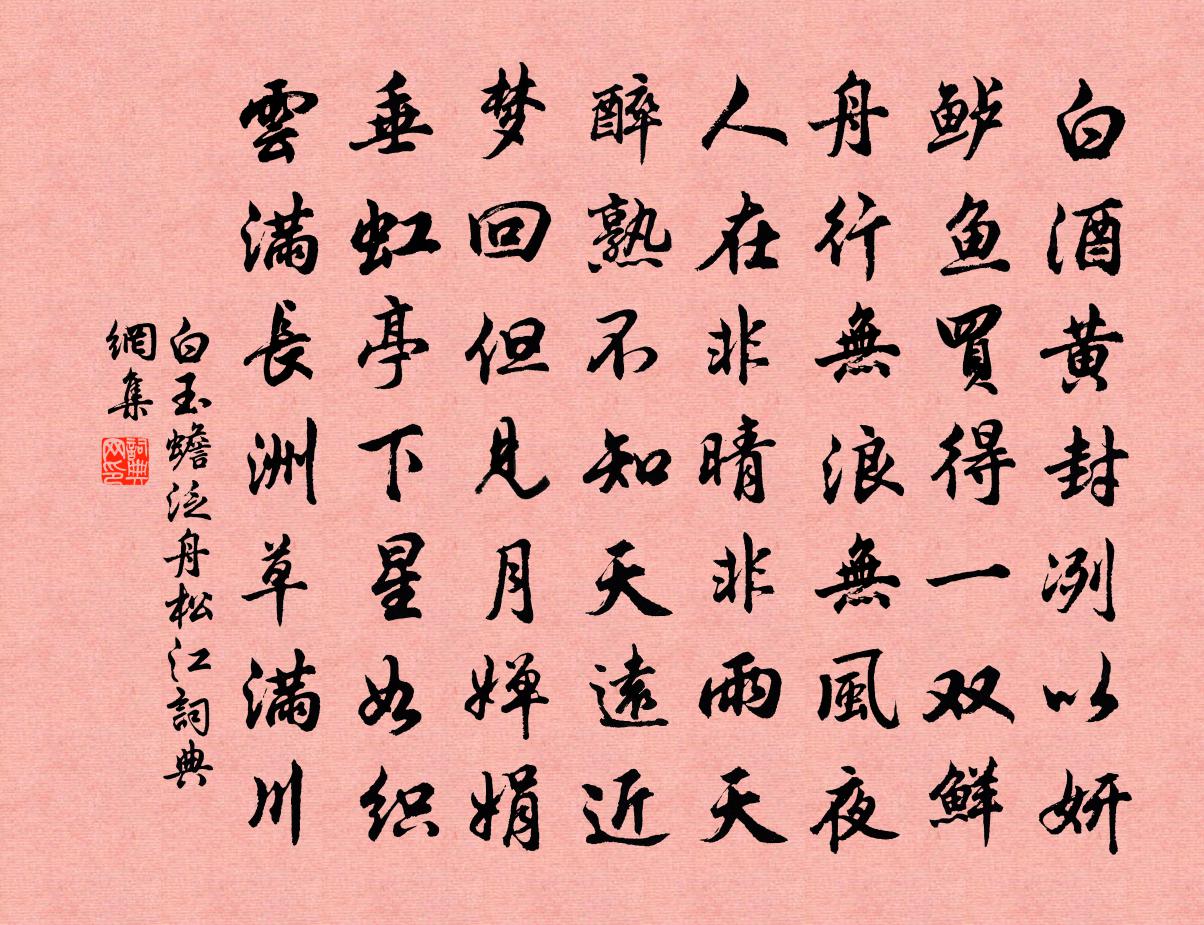 白酒黄封冽以妍
鲈鱼買得一双鮮
舟行無浪無風夜
人在非晴非雨天
醉熟不知天遠近
梦回但見月婵娟
垂虹亭下星如织
雲滿長洲草滿川
白玉蟾泛舟松江詞典
網集
詞典
网印